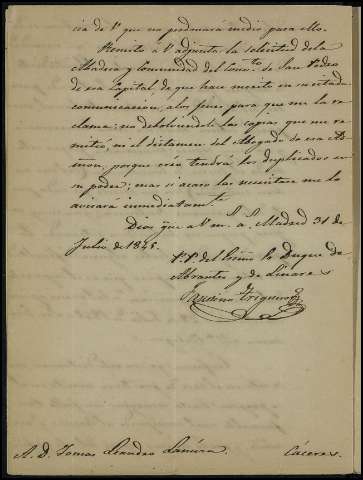 cia de V. que no perdonará medio para ello.
Remito á V. adjunta la solicitud de la
Madera y Comunidad del Conv.to de San Pedro
de esa Capital, de que hace merito en su citada
comunicacion, á los fines para que me la re
clama; no debolviendole las copias que me re
mitió, ni el dictamen del Abogado de esa
porque creo tendrá los duplicados en
su poder; mas si acaso las necesitase me lo
avisará inmediatam.te
Dios gue á V. m. a. Madrid 31 de
Julio de 1845.
P. P. del Exmo Sr. Duque de
Abrantes y de Linares
Trigueros
A. D. Tomas Leandro
Cáceres.